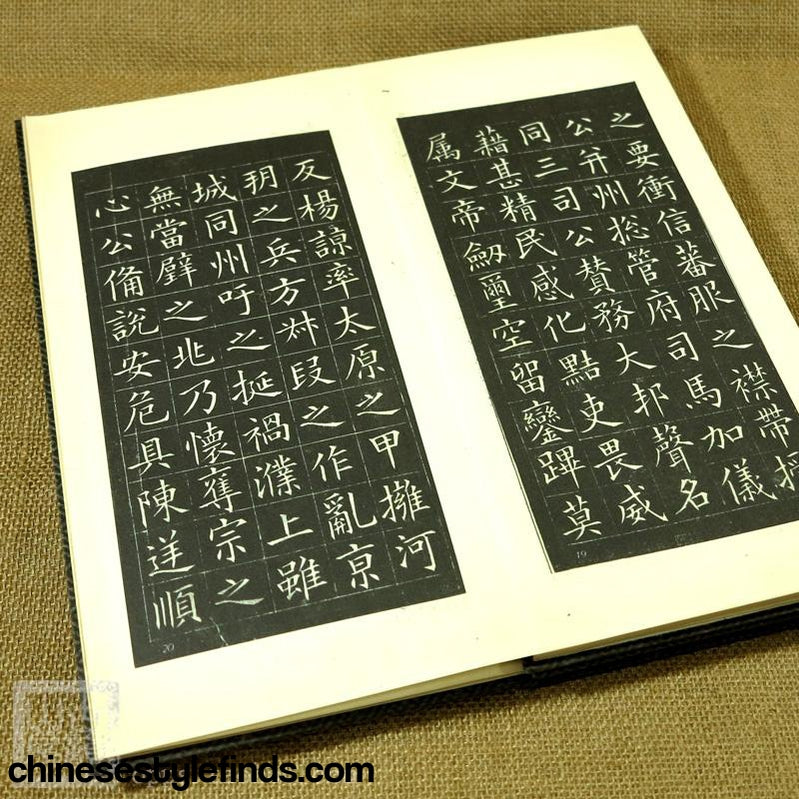 之要衝信蕃服之襟帶授
公并州捴管府司馬加儀
同三司公賛務大邦聲名
藉甚精民感化黠吏畏威
属文帝劔璽空留鑾蹕莫
19
反楊諒率太原之甲擁河
玥之兵方叔段之作亂京
城同州吁之挻禍濮上雖
無當璧之兆乃懷奪宗之
心公俻說安危具陳逆順
20
chinesestylefinds.com